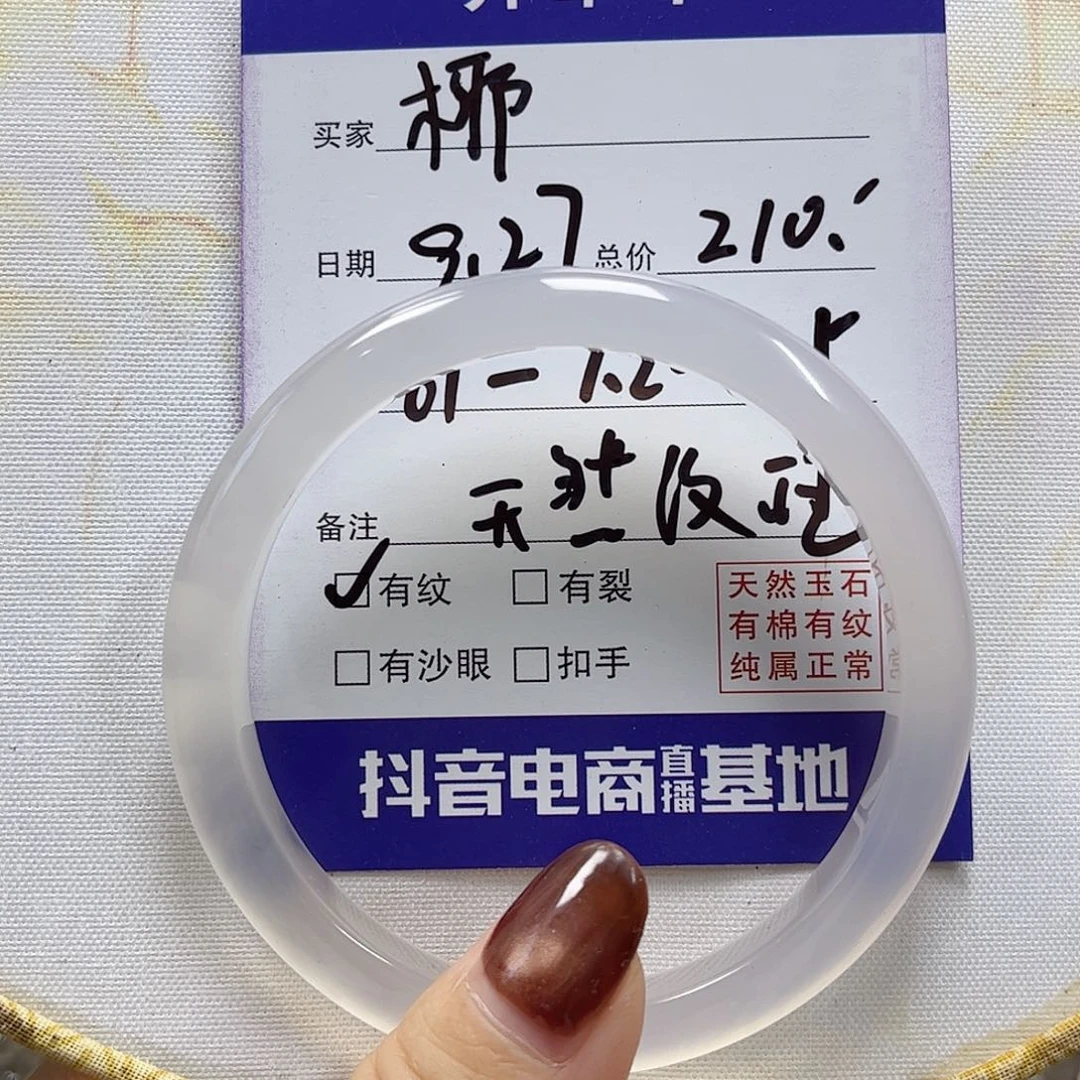 买家 椰
日期 9.27 总价 210.
01-1.2
备注 天然
有纹 有裂
有沙眼 扣手
天然玉石
有棉有纹
纯属正常
抖音电商直播基地